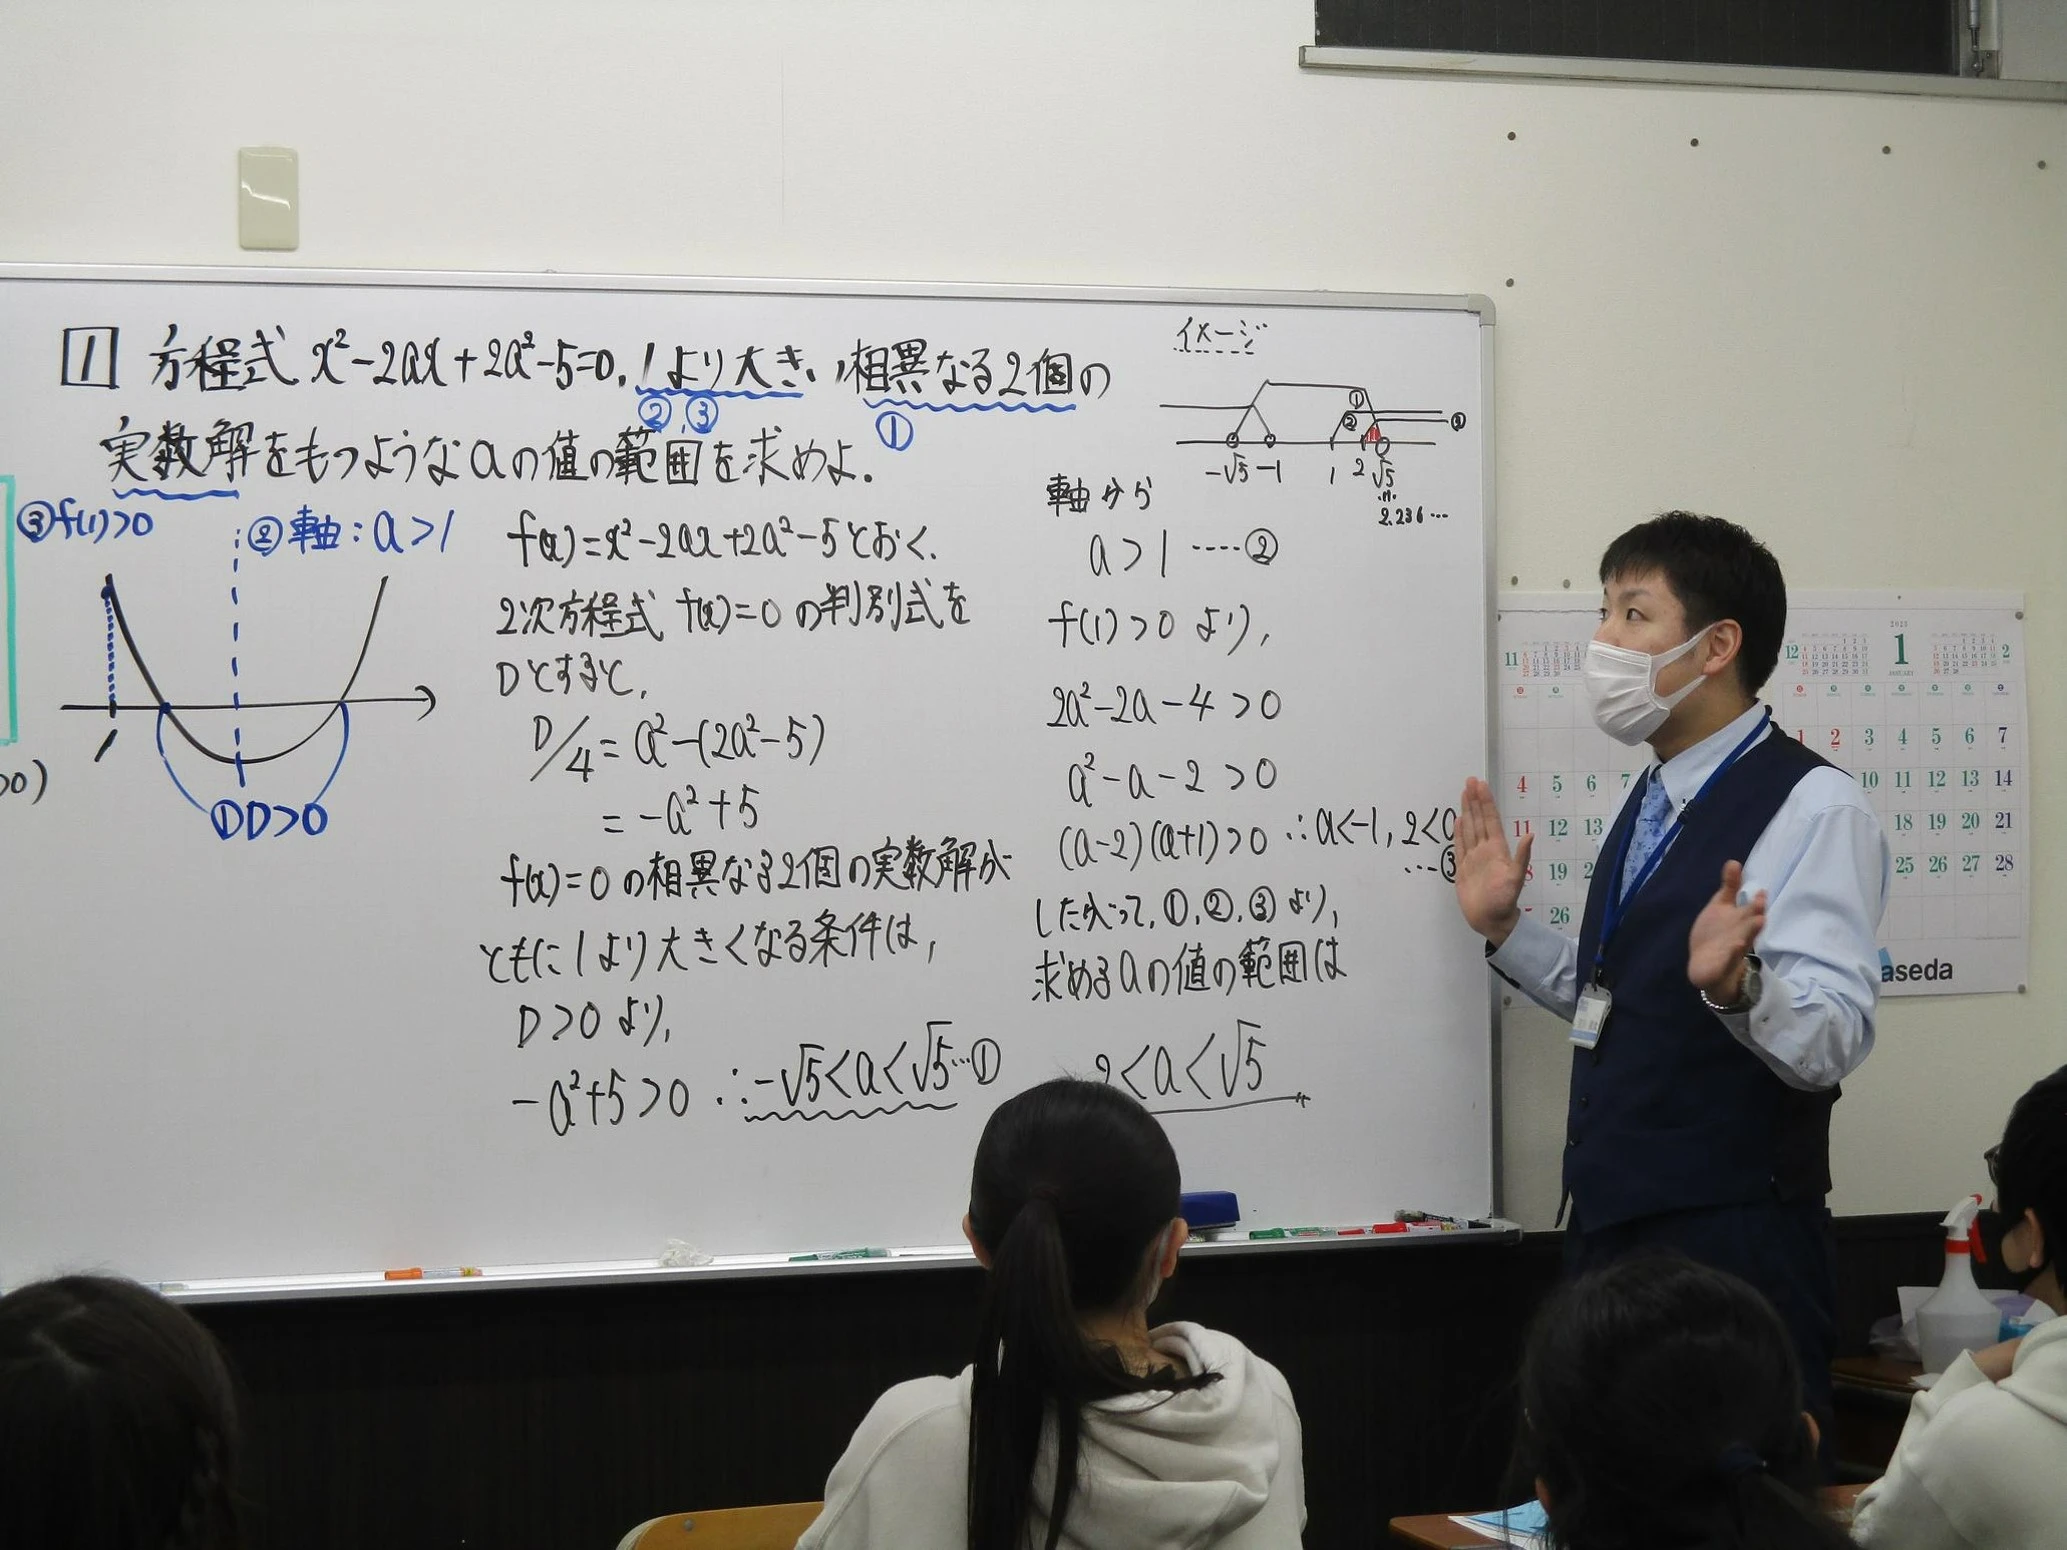 1 方程式 x²-2ax+2a²-5=0, 1より大きい, 相異なる2個の
②,③ ①
実数解をもつようなaの値の範囲を求めよ.
③f(1)>0
②軸:a>1
1
①D>0
>0)
f(x)=x²-2ax+2a²-5とおく.
2次方程式 f(x)=0 の判別式を
Dとすると,
D/4=a²-(2a²-5)
=-a²+5
f(x)=0 の相異なる2個の実数解が
ともに1より大きくなる条件は,
D>0 より,
-a²+5>0 ∴-√5<a<√5…①
イメージ
① ② ③
-√5 -1 1 2 √5
2.236…
軸から
a>1 ……②
f(1)>0 より,
2a²-2a-4>0
a²-a-2>0
(a-2)(a+1)>0 ∴a<-1, 2<a
…③
したがって, ①, ②, ③ より,
求めるaの値の範囲は
2<a<√5
11
12
2023
1
JANUARY
2
1 2 3 4 5 6 7
4 5 6 7
10 11 12 13 14
11 12 13
18 19 20 21
19
25 26 27 28
26
aseda